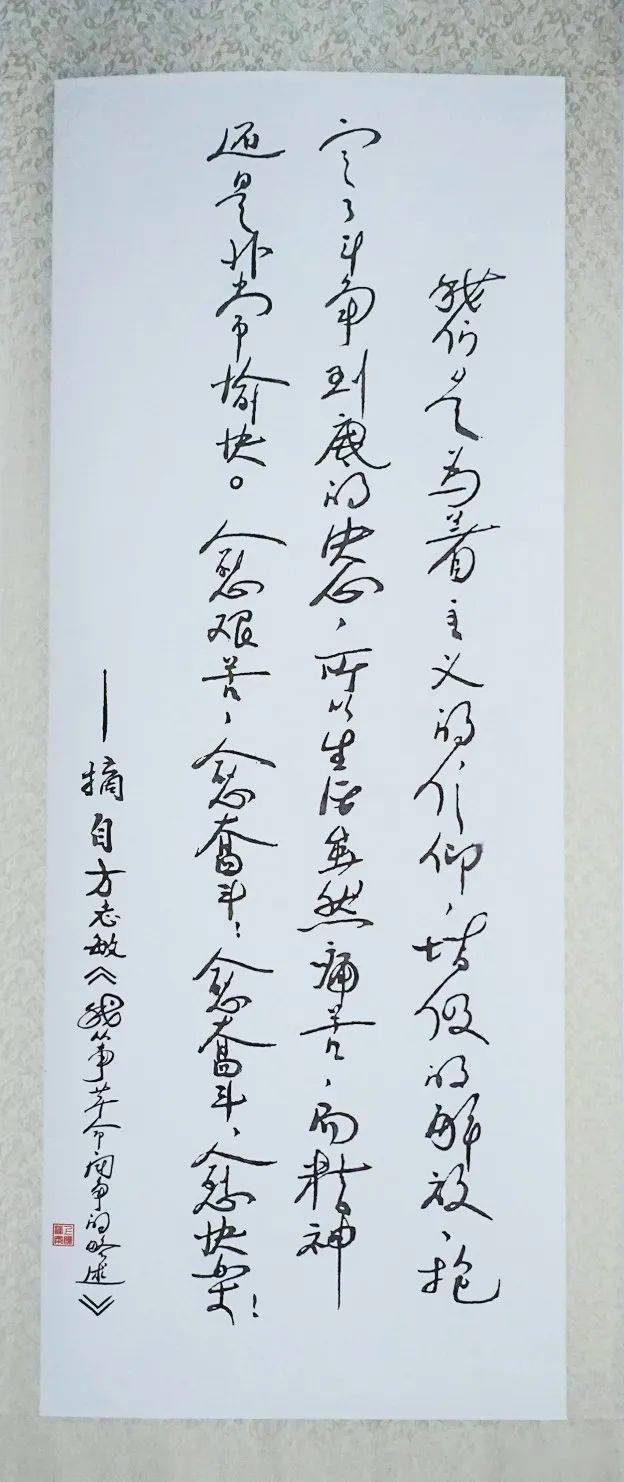 我们是为着主义的信仰、阶级的解放、抱
定了斗争到底的决心、所以生活虽然痛苦、而精神
还是非常愉快。愈艰苦、愈奋斗！愈奋斗、愈快乐！
——摘自方志敏《我从事革命斗争的略述》